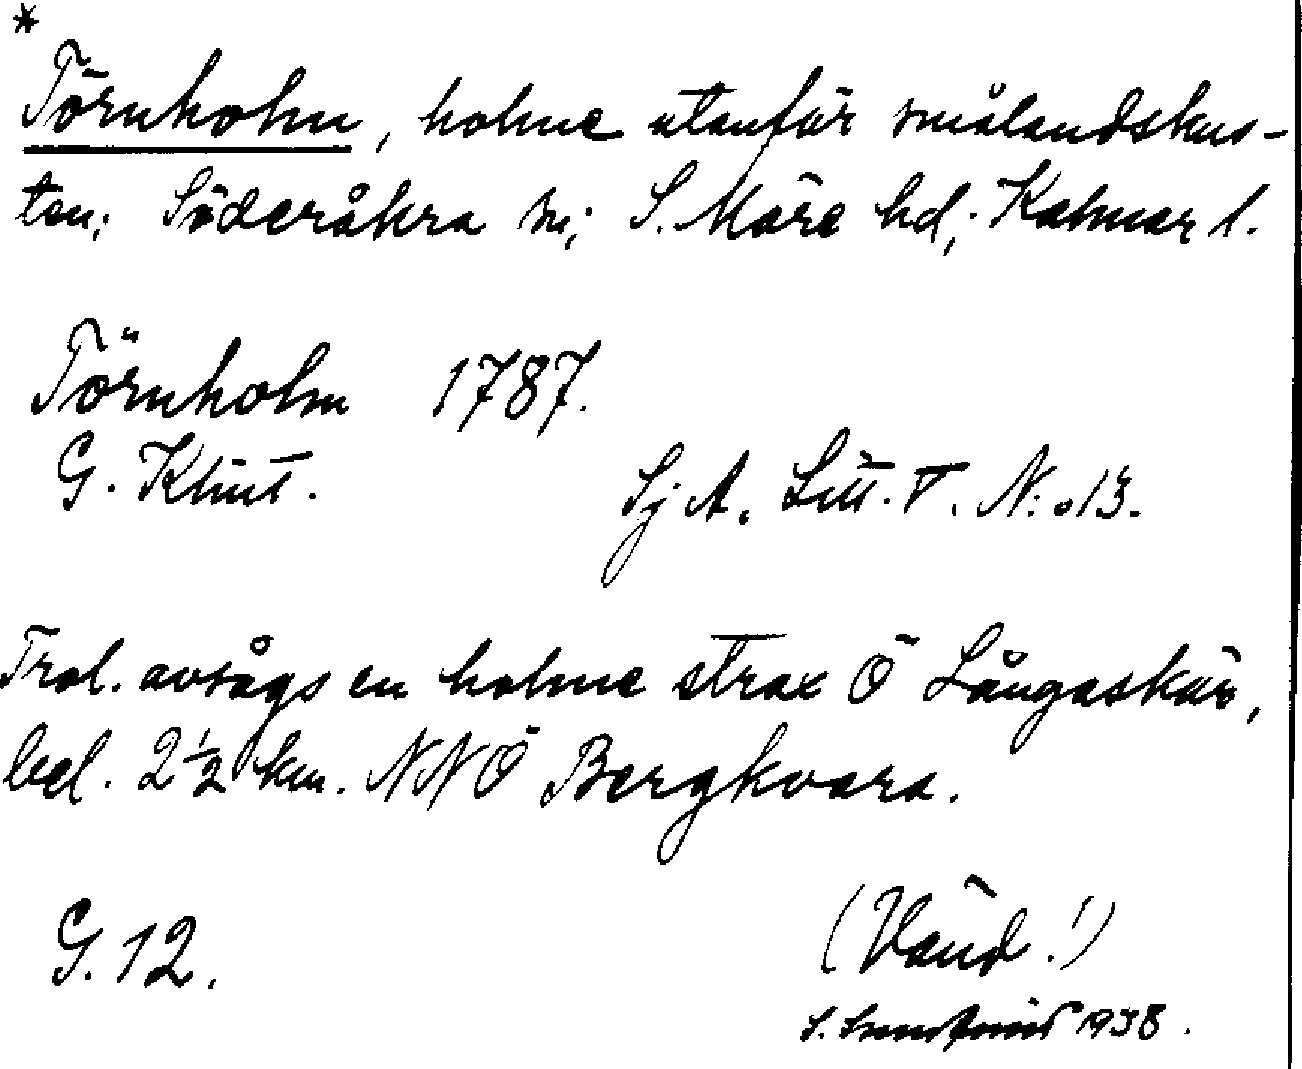 *
Törnholm, holme utanför smålandskus-
ten; Söderåkra sn; S. Möre hd; Kalmar l.
Törnholm 1787.
G. Klint. Sj A. Litt. V. N:o 13.
Trol. avsågs en holme strax Ö Långaskär,
bel. 2½ km. NNÖ Bergkvara.
G. 12. (Vänd!)
S. 1938.